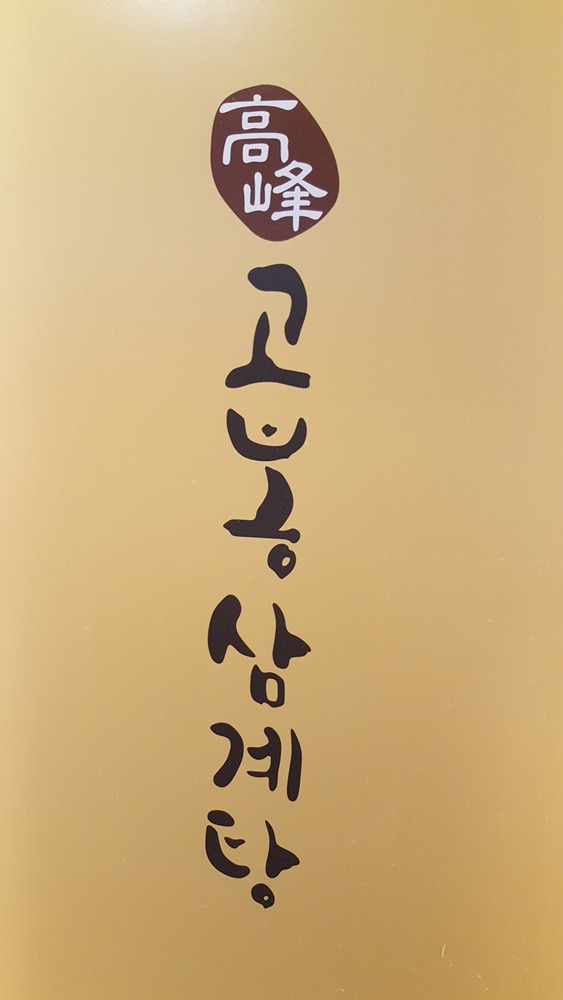 高峰
고봉삼계탕